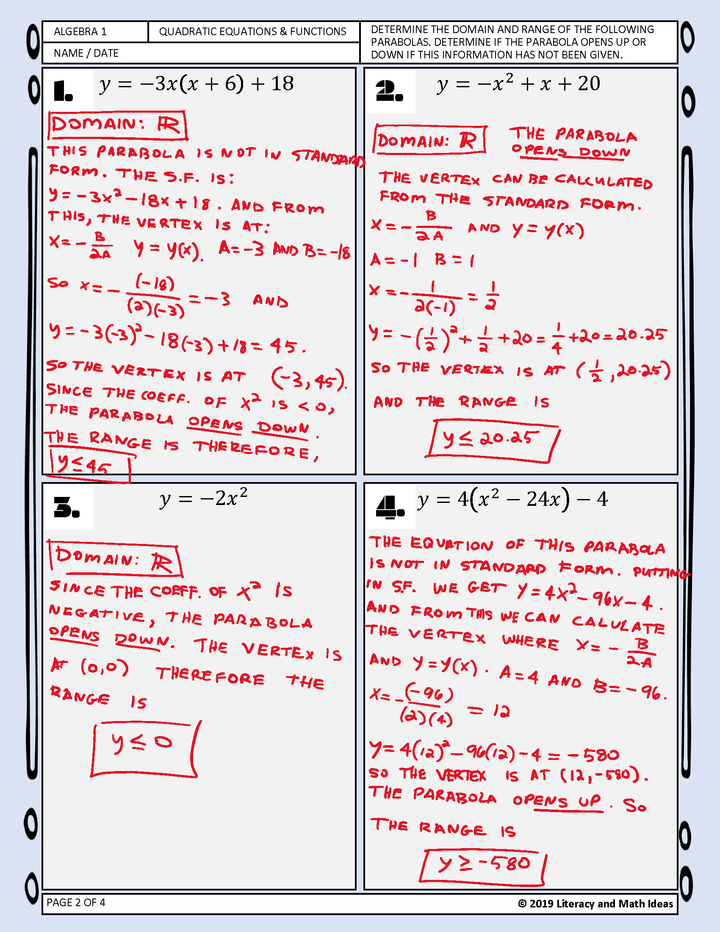 ALGEBRA 1
QUADRATIC EQUATIONS & FUNCTIONS
DETERMINE THE DOMAIN AND RANGE OF THE FOLLOWING
PARABOLAS. DETERMINE IF THE PARABOLA OPENS UP OR
DOWN IF THIS INFORMATION HAS NOT BEEN GIVEN.
NAME / DATE
1. y = −3x(x + 6) + 18
DOMAIN: ℝ
THIS PARABOLA IS NOT IN STANDARD
FORM. THE S.F. IS:
y = -3x² - 18x + 18. AND FROM
THIS, THE VERTEX IS AT:
x = - B/2A y = y(x). A = -3 AND B = -18
SO x = - (-18)/(2)(-3) = -3 AND
y = -3(-3)² - 18(-3) + 18 = 45.
SO THE VERTEX IS AT (-3, 45).
SINCE THE COEFF. OF x² IS < 0,
THE PARABOLA OPENS DOWN.
THE RANGE IS THEREFORE,
y ≤ 45
2. y = −x² + x + 20
DOMAIN: ℝ
THE PARABOLA
OPENS DOWN
THE VERTEX CAN BE CALCULATED
FROM THE STANDARD FORM.
x = - B/2A AND y = y(x)
A = -1 B = 1
x = - 1/2(-1) = 1/2
y = -(1/2)² + 1/2 + 20 = 1/4 + 20 = 20.25
SO THE VERTEX IS AT (1/2, 20.25)
AND THE RANGE IS
y ≤ 20.25
3. y = −2x²
DOMAIN: ℝ
SINCE THE COEFF. OF x² IS
NEGATIVE, THE PARABOLA
OPENS DOWN. THE VERTEX IS
AT (0,0) THEREFORE THE
RANGE IS
y ≤ 0
4. y = 4(x² − 24x) − 4
THE EQUATION OF THIS PARABOLA
IS NOT IN STANDARD FORM. PUTTING
IN S.F. WE GET y = 4x² - 96x - 4.
AND FROM THIS WE CAN CALULATE
THE VERTEX WHERE x = - B/2A
AND y = y(x). A = 4 AND B = -96.
x = - (-96)/(2)(4) = 12
y = 4(12)² - 96(12) - 4 = -580
SO THE VERTEX IS AT (12, -580).
THE PARABOLA OPENS UP. SO
THE RANGE IS
y ≥ -580
PAGE 2 OF 4
© 2019 Literacy and Math Ideas